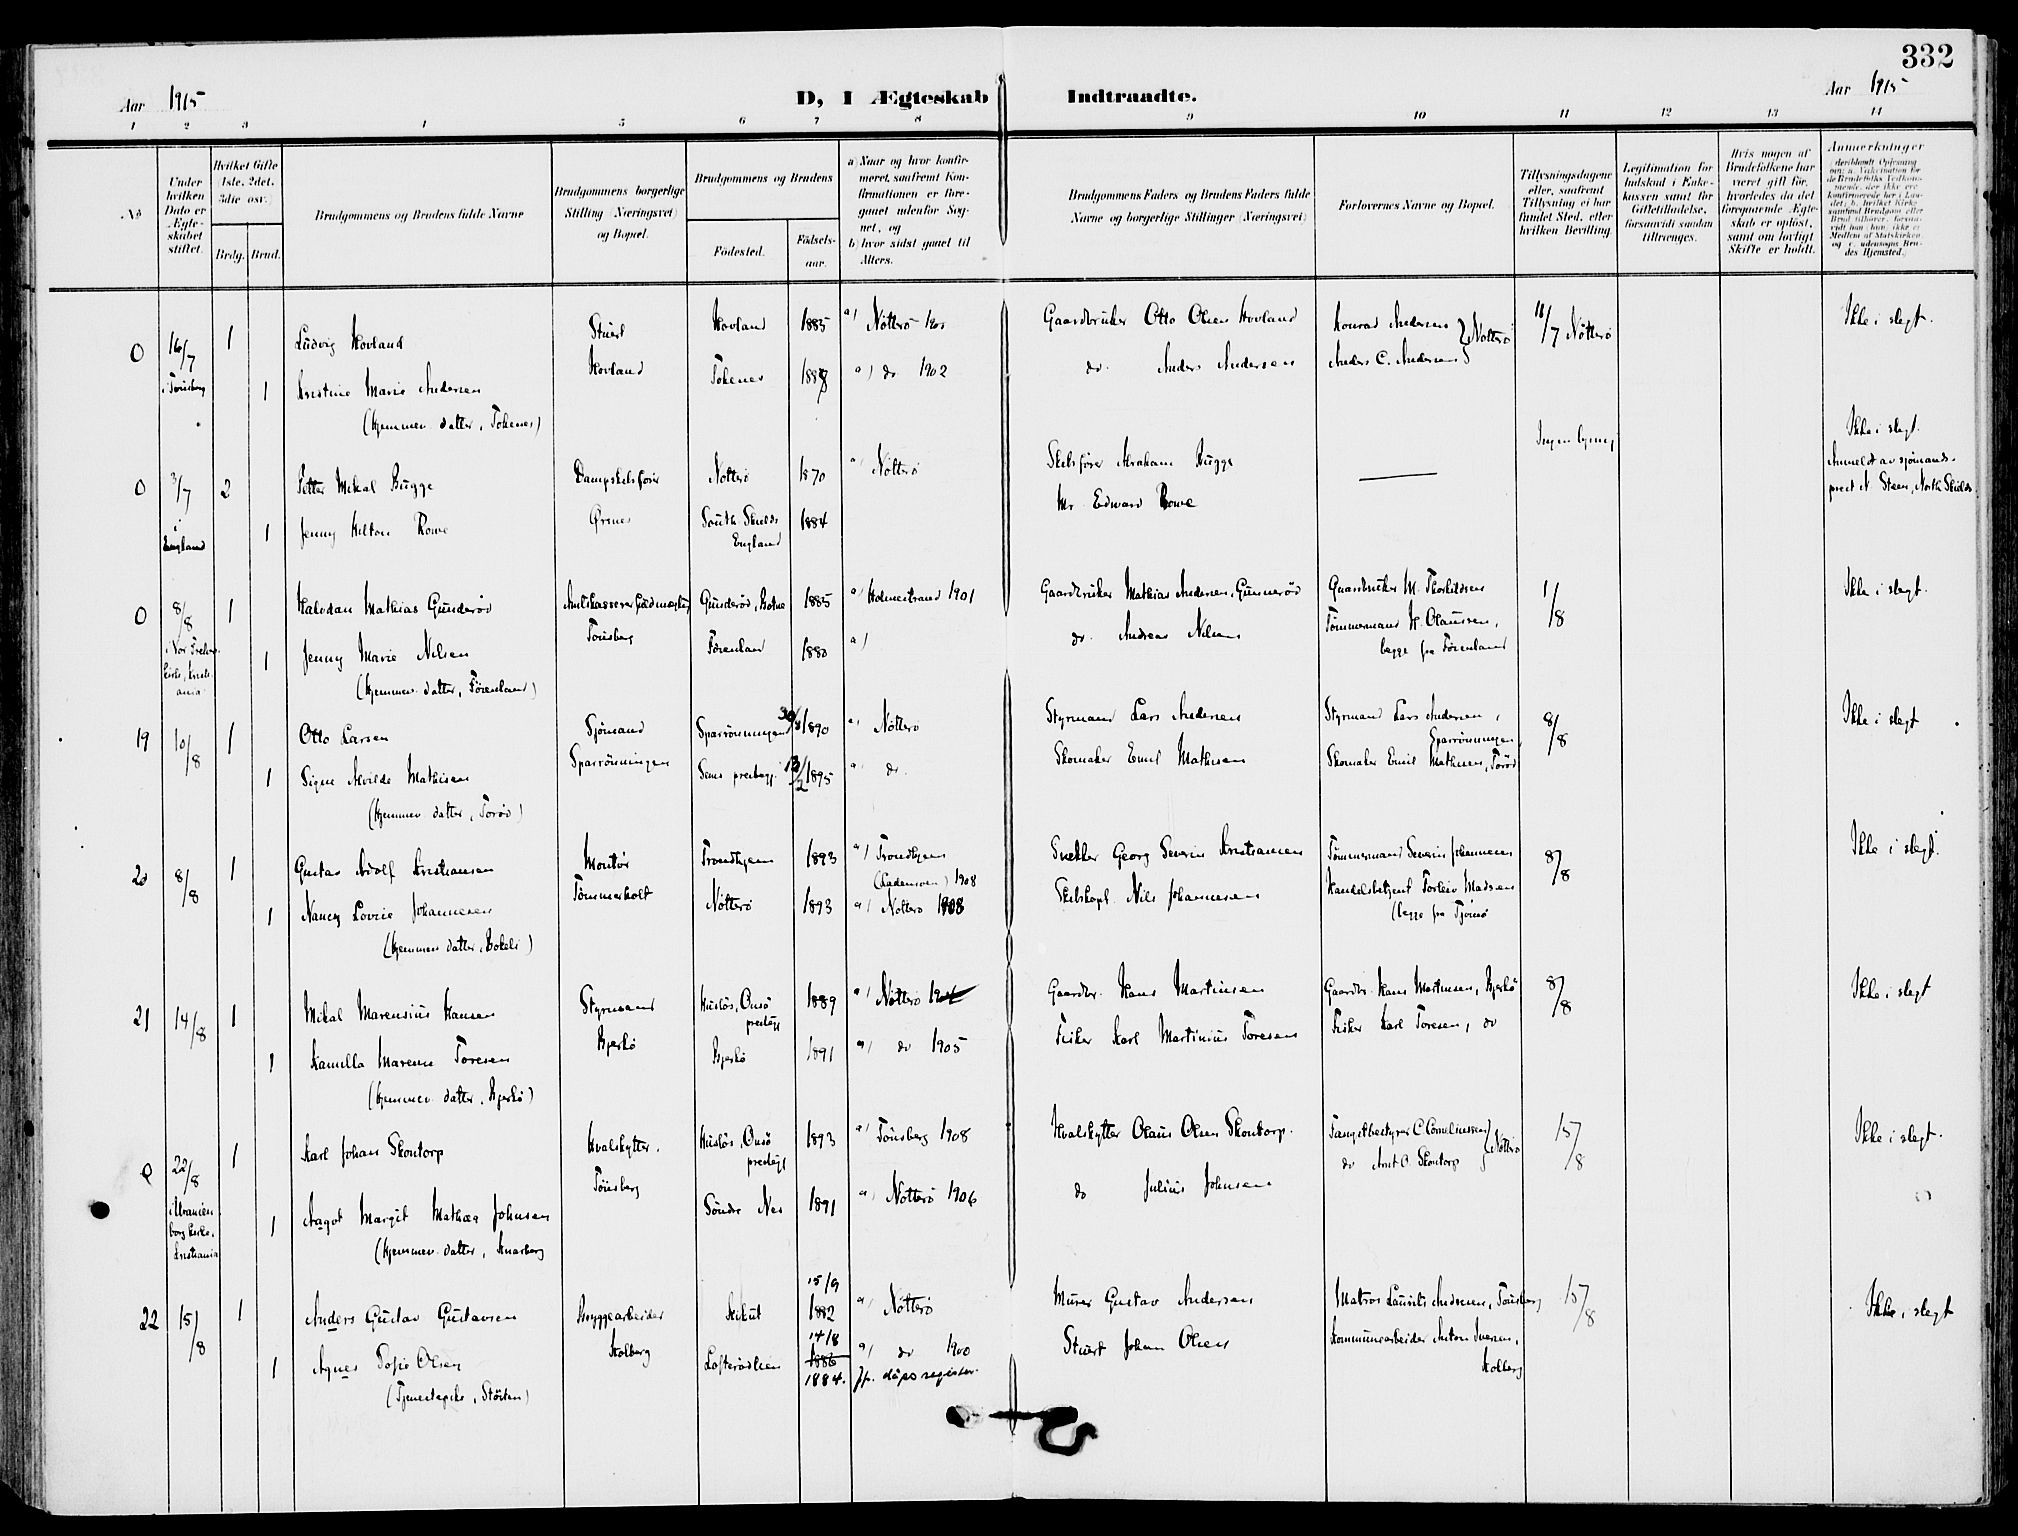 332
Aar 1915
D, I Ægteskab Indtraadte.
Aar 1915
1 2 3 4 5 6 7 8 9 10 11 12 13 14
No
Under hvilken Dato er Ægteskabet stiftet.
Hvilket Gifte (1ste, 2det, 3die osv.)
Brdg. Brud.
Brudgommens og Brudens fulde Navne
Brudgommens borgerlige Stilling (Næringsvei) og Bopæl.
Brudgommens og Brudens
Fødested.
Fødselsaar.
a) Naar og hvor konfirmeret, saafremt Konfirmationen er foregaaet udenfor Sognet, og
b) hvor sidst gaaet til Alters.
Brudgommens Faders og Brudens Faders fulde Navne og borgerlige Stillinger (Næringsvei)
Forlovernes Navne og Bopæl.
Tillysningsdagene eller, saafremt Tillysning ei har fundet Sted, efter hvilken Bevilling.
Legitimation for Indskud i Enkekassen samt for Giftetilladelse, forsaavidt saadan tiltrænges.
Hvis nogen af Brudefolkene har været gift før, hvorledes da det foregaaende Ægteskab er opløst, samt om lovligt Skifte er holdt.
Anmærkninger
0 16/7 i Tønsberg 1 Ludvig Hovland Stuert Hovland Hovland 1885 a) Nøtterø 1900 Gaardbruker Otto Olsen Hovland Konrad Andersen Nøtterø 18/7 Nøtterø Ikke i slegt.
1 Kristine Marie Andersen Tokenes a) do 1902 do. Anders Andersen Anders C. Andersen
(hjemmev. datter, Tokenes)
0 3/7 i England 2 Petter Mikal Bugge Dampskibsfører Ørsnes Nøtterø 1870 a) Nøtterø Skibsfører Abraham Bugge — Ingen lysning Ikke i slegt.
Anmeldt av sjømandsprest N. Steen, North Shields
1 Jenny Hilton Rowe South Shields England 1884 Mr. Edward Rowe
0 8/8 1 Halvdan Mathias Gunderød Tønsberg Gunderød, Botne 1885 a) Holmestrand 1901 Gaardbruker Mathias Andersen, Gunnerød Gaardbruker M. Thorkildsen 1/8 Ikke i slegt.
1 Jenny Marie Nilsen Førenland 1880 a) do. Andreas Nilsen Tømmermand H. Olaussen,
begge fra Førenland
(hjemmev. datter, Førenland)
19 10/8 1 Otto Larsen Sjømand Sparrønningen Sparrønningen 1890 a) Nøtterø Styrmand Lars Andersen Styrmand Lars Andersen, Sparrønningen, 8/8 Ikke i slegt
1 Signe Alvilde Mathisen Sems prestegj. 13/2 1895 a) do. Skomaker Emil Mathisen Skomaker Emil Mathisen, Torød
(hjemmev. datter, Torød)
20 8/8 1 Gustav Adolf Kristiansen Montør Tømmerholt Trondhjem 1893 a) Trondhjem (Lademoen) 1908 Snekker Georg Severin Kristiansen Tømmermand Severin Johannesen 8/8 Ikke i slegt.
1 Nancy Lovise Johannesen Nøtterø 1893 a) Nøtterø 1908 Skibskapt. Nils Johannesen Handelsbetjent Torleiv Madsen
(begge fra Tjømø
(hjemmev datter, Bokeli)
21 14/8 1 Mikal Marensius Hansen Styrmand Bjerkø Husøs, Ousø prestegj 1889 a) Nøtterø Gaardbr. Hans Martinsen Gaardbr. Hans Martinsen, Bjerkø 8/8 Ikke i slegt
1 Kamilla Marene Toresen Bjerkø 1891 a) do 1905 Fisker Karl Martinius Toresen Fisker Karl Toresen, do
(hjemmev. datter, Bjerkø)
22/8 i Uranienborg kirke, Kristiania 1 Karl Johan Skontorp Hvalskytter, Tønsberg Husøs, Ousø prestegj 1893 a) Tønsberg 1908 Hvalskytter Olaus Olsen Skontorp. Fangstbestyrer C Corneliussen Nøtterø 15/8 Ikke i slegt.
1 Aagot Margit Mathea Johnsen Søndre Nes 1891 a) Nøtterø 1906 do Julius Johnsen do Arnt O. Skontorp
(hjemmev. datter, Knarberg
22 15/8 1 Anders Gustav Gustavsen Bryggearbeider Kolberg Kikut 15/9 1882 a) Nøtterø Murer Gustav Andersen Matros Laurits Andersen, Tønsberg 15/8 Ikke i slegt
1 Agnes Sofie Olsen 14/8 1886 1884. a) do 1900 jfr. dåpsregister. Stuert Johan Olsen Kommunearbeider Anton Iversen, Kolberg
(Tjenestepike, Støiten)